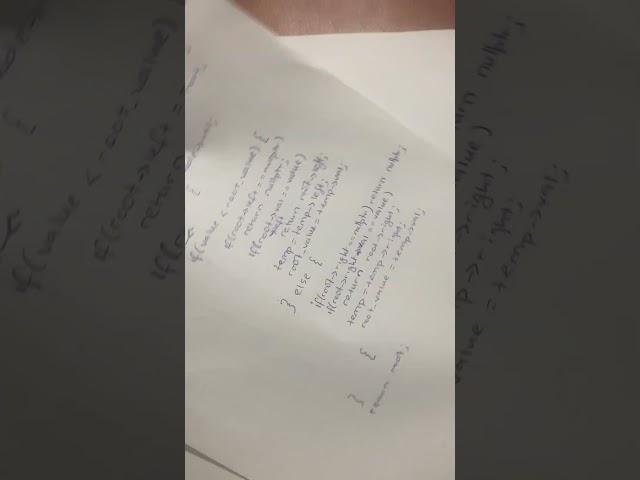 if(value < root_value) {
if(root->left == nullptr)
return nullptr;
if(root->left->val == value)
return root->left;
temp = temp->left;
root_value = temp->val;
} else {
if(root->right == nullptr) return nullptr;
if(root->right->val == value)
return root->right;
temp = temp->right;
root_value = temp->val;
}
}
return root;